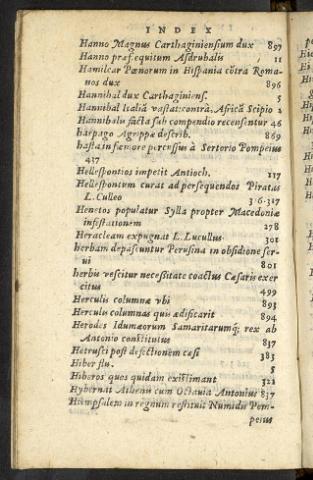 INDEX
Hanno Magnus Carthaginiensium dux 897
Hanno præf. equitum Asdrubalis 11
Hamilcar Pœnorum in Hispania cõtra Roma-
nos dux 896
Hannibal dux Carthaginiens. 5
Hannibal Italiã vastat: contra, Africã Scipio 2
Hannibalis facta sub compendio recensentur 46
harpago Agrippæ describ. 869
hasta in fœmore percussus à Sertorio Pompeius
437
Hellespontios impetit Antioch. 117
Hellespontum curat ad persequendos Piratas
L. Culleo 316.317
Henetos populatur Sylla propter Macedoniæ
infestationem 278
Heracleam expugnat L. Lucullus 301
herbam depascuntur Perusina in obsidione ser-
ui 801
herbis vescitur necessitate coactus Cæsaris exer
citus 499
Herculis columnæ vbi 893
Herculis columnas quis ædificarit 894
Herodes Idumæorum Samaritarumq; rex ab
Antonio constitutus 837
Hetrusci post defectionem cæsi 383
Hiber flu. 5
Hiberos quos quidam existimant 322
Hybernat Athenis cum Octauia Antonius 837
Hiempsalem in regnum restituit Numidis Pom-
peius